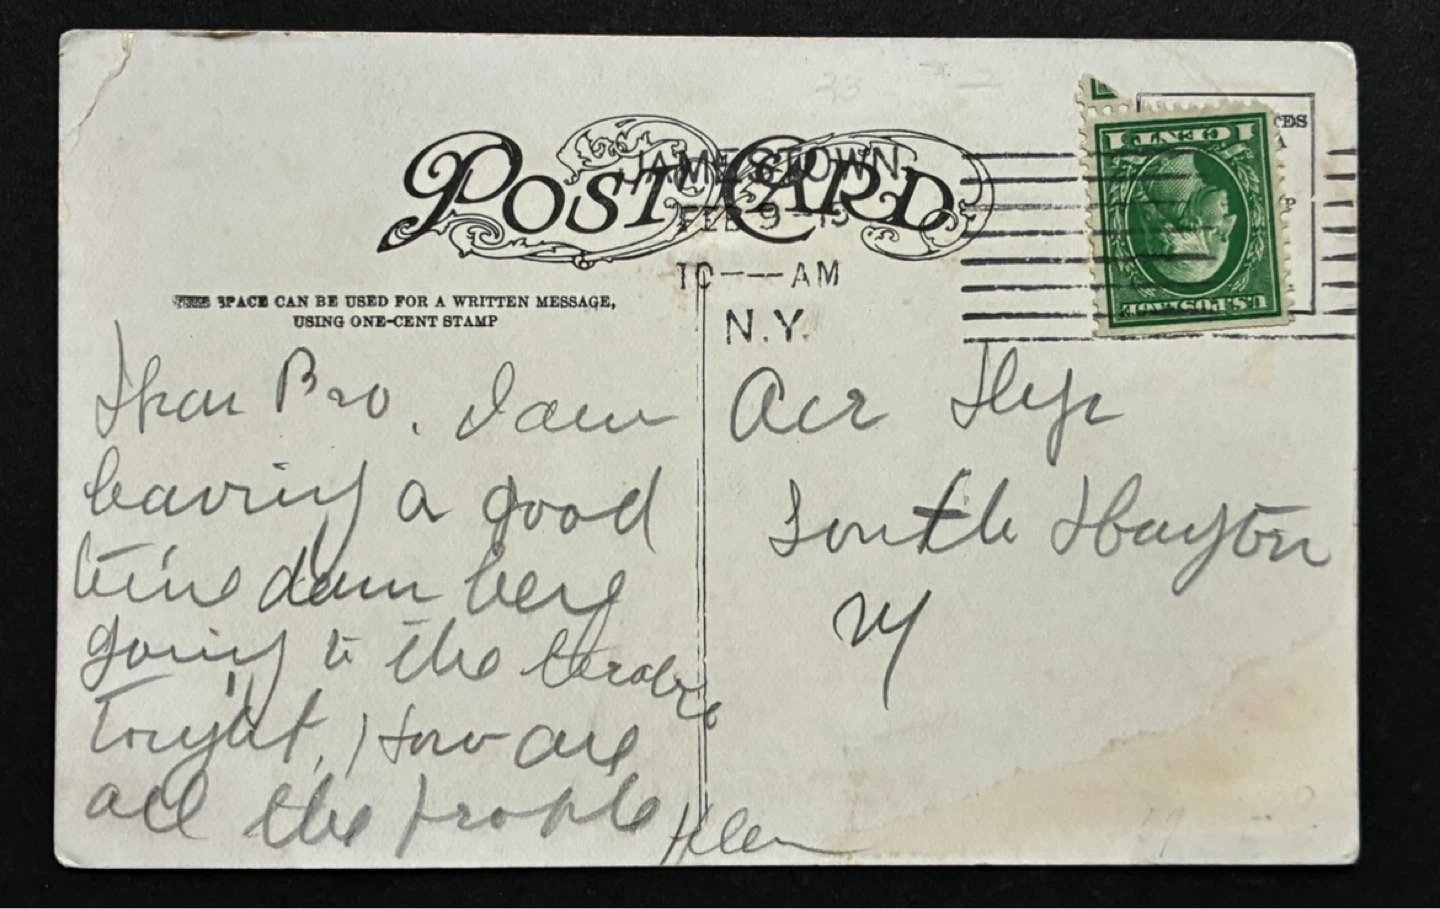 POST CARD
JAMESTOWN
FEB 9
10 — AM
N.Y.
SPACE CAN BE USED FOR A WRITTEN MESSAGE,
USING ONE-CENT STAMP
1 CENT 1
U.S. POSTAGE
Dear Bro. I am
having a good
time
going to the
tonight, How are
all the people
Helen
South Dayton
NY